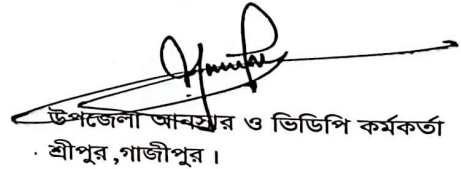 উপজেলা আনসার ও ভিডিপি কর্মকর্তা
শ্রীপুর ,গাজীপুর ।